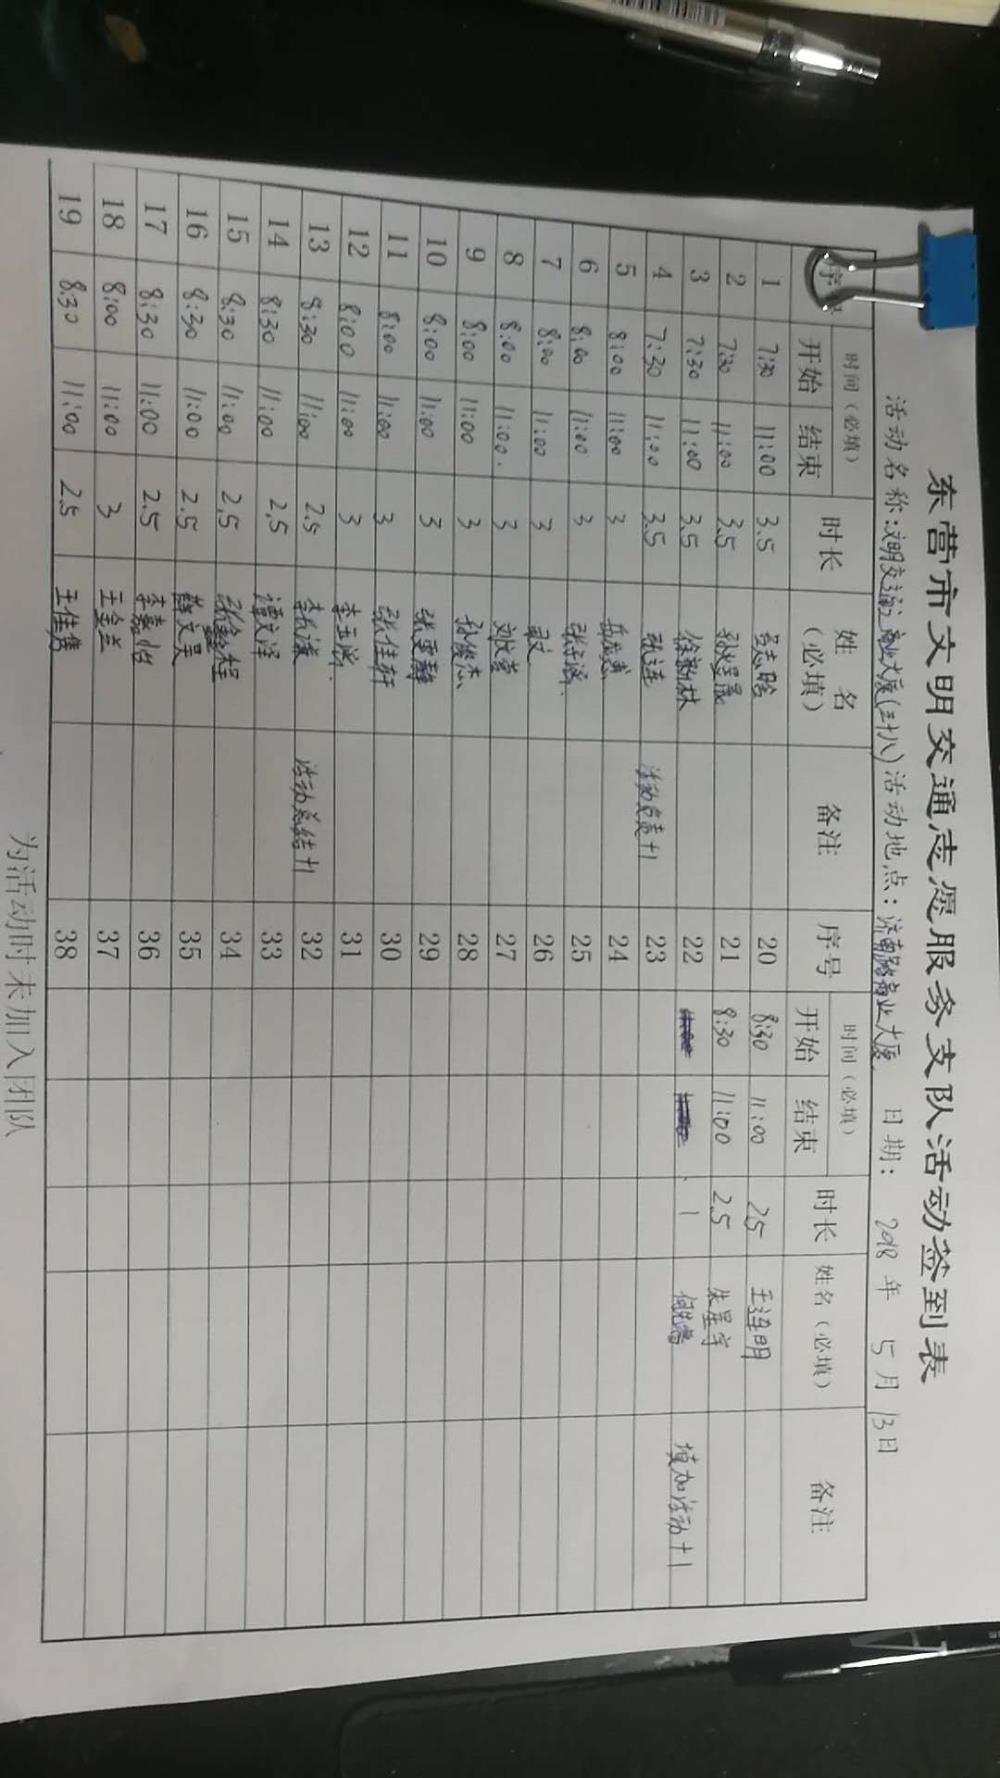 东营市文明交通志愿服务支队活动签到表
活动名称:文明交通之商业大厦(三十八) 活动地点:济南路商业大厦 日期: 2018年 5月 13日
序号 时间(必填) 时长 姓名(必填) 备注 序号 时间(必填) 时长 姓名(必填) 备注
开始 结束 开始 结束
1 7:30 11:00 3.5 20 8:30 11:00 2.5 王连明
2 7:30 11:00 3.5 21 8:30 11:00 2.5 朱星宇
3 7:30 11:00 3.5 22 1 填加活动+1
4 7:30 11:00 3.5 张连 活动负责+1 23
5 8:00 11:00 3 24
6 8:00 11:00 3 25
7 8:00 11:00 3 26
8 8:00 11:00. 3 27
9 8:00 11:00 3 孙俊杰 28
10 8:00 11:00 3 张雯静 29
11 8:00 11:00 3 张佳轩 30
12 8:00 11:00 3 31
13 8:30 11:00 2.5 活动总结+1 32
14 8:30 11:00 2.5 谭文泽 33
15 8:30 11:00 2.5 34
16 8:30 11:00 2.5 薛文昊 35
17 8:30 11:00 2.5 李嘉恒 36
18 8:00 11:00 3 王金兰 37
19 8:30 11:00 2.5 王佳隽 38
为活动时未加入团队